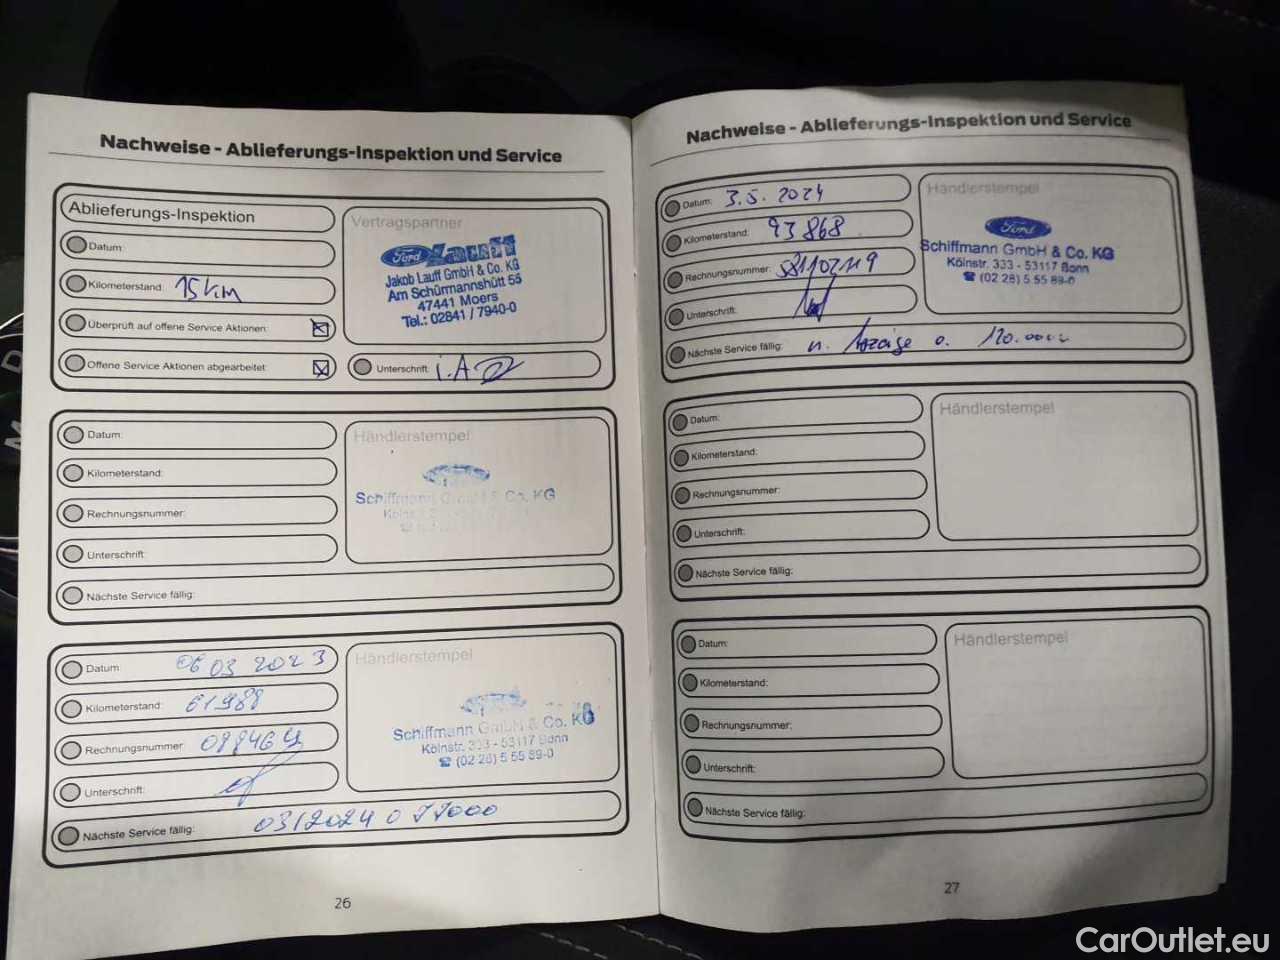 Nachweise - Ablieferungs-Inspektion und Service
Ablieferungs-Inspektion
Datum:
Kilometerstand: 15 km
Überprüft auf offene Service Aktionen:
Offene Service Aktionen abgearbeitet:
Vertragspartner
Ford Lauff
Jakob Lauff GmbH & Co. KG
Am Schürmannshütt 55
47441 Moers
Tel.: 02841 / 7940-0
Unterschrift: i.A
Datum:
Kilometerstand:
Rechnungsnummer:
Unterschrift:
Nächste Service fällig:
Händlerstempel
Schiffmann GmbH & Co. KG
Datum: 06 03 2023
Kilometerstand: 61988
Rechnungsnummer:
Unterschrift:
Nächste Service fällig: 03/2024 o 77000
Händlerstempel
Schiffmann GmbH & Co. KG
Kölnstr. 333 - 53117 Bonn
☎ (02 28) 5 55 89-0
26
Nachweise - Ablieferungs-Inspektion und Service
Datum: 3.5.2024
Kilometerstand: 93868
Rechnungsnummer:
Unterschrift:
Nächste Service fällig: n. Anzeige o. 120.000
Händlerstempel
Ford
Schiffmann GmbH & Co. KG
Kölnstr. 333 - 53117 Bonn
☎ (02 28) 5 55 89-0
Datum:
Kilometerstand:
Rechnungsnummer:
Unterschrift:
Nächste Service fällig:
Händlerstempel
Datum:
Kilometerstand:
Rechnungsnummer:
Unterschrift:
Nächste Service fällig:
Händlerstempel
27
CarOutlet.eu